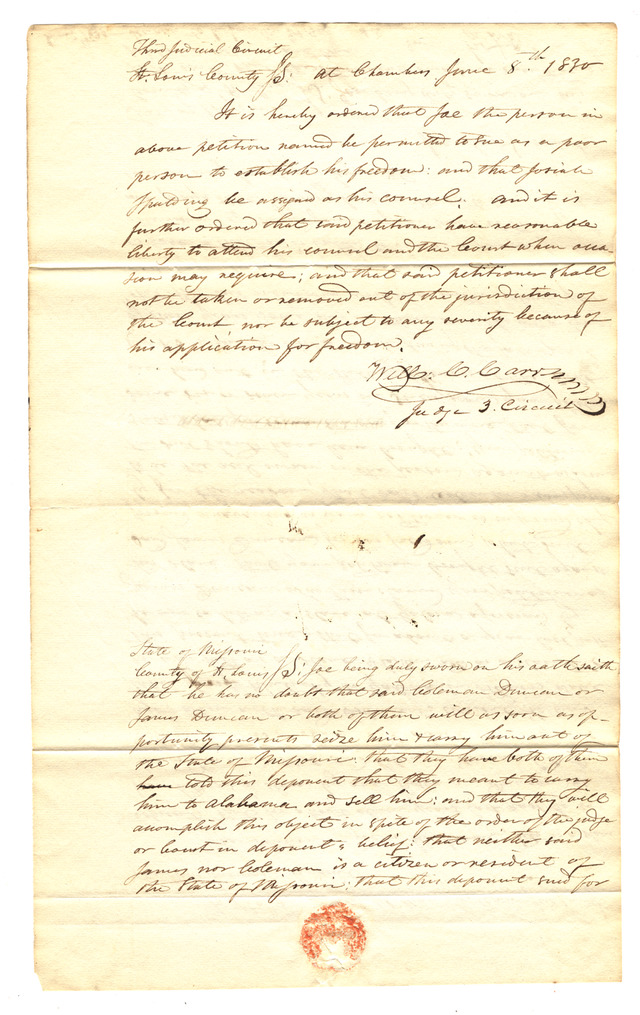 Third Judicial Circuit
St. Louis County SS: at Chambers June 8th. 1830
It is hereby ordered that Joe the person in
above petition named be permitted to sue as a poor
person to establish his freedom: and that Josiah
Spalding be assigned as his counsel. and it is
further ordered that said petitioner have reasonable
liberty to attend his counsel and the Court when occa
sion may require; and that said petitioner shall
not be taken or removed out of the jurisdiction of
the Court, nor be subject to any severity because of
his application for freedom.
Wm. C. Carr
Judge 3. Circuit
State of Missouri
County of St. Louis SS: Joe being duly sworn on his oath saith
that he has no doubt that said Coleman Duncan or
James Duncan or both of them will as soon as op-
portunity presents seize him & carry him out of
the State of Missouri: that they have both of them
have told this deponent that they meant to carry
him to Alabama and sell him: and that they will
accomplish this object in spite of the order of the judge
or Court in deponent's belief: that neither said
James nor Coleman is a citizen or resident of
the State of Missouri: that this deponent sued for